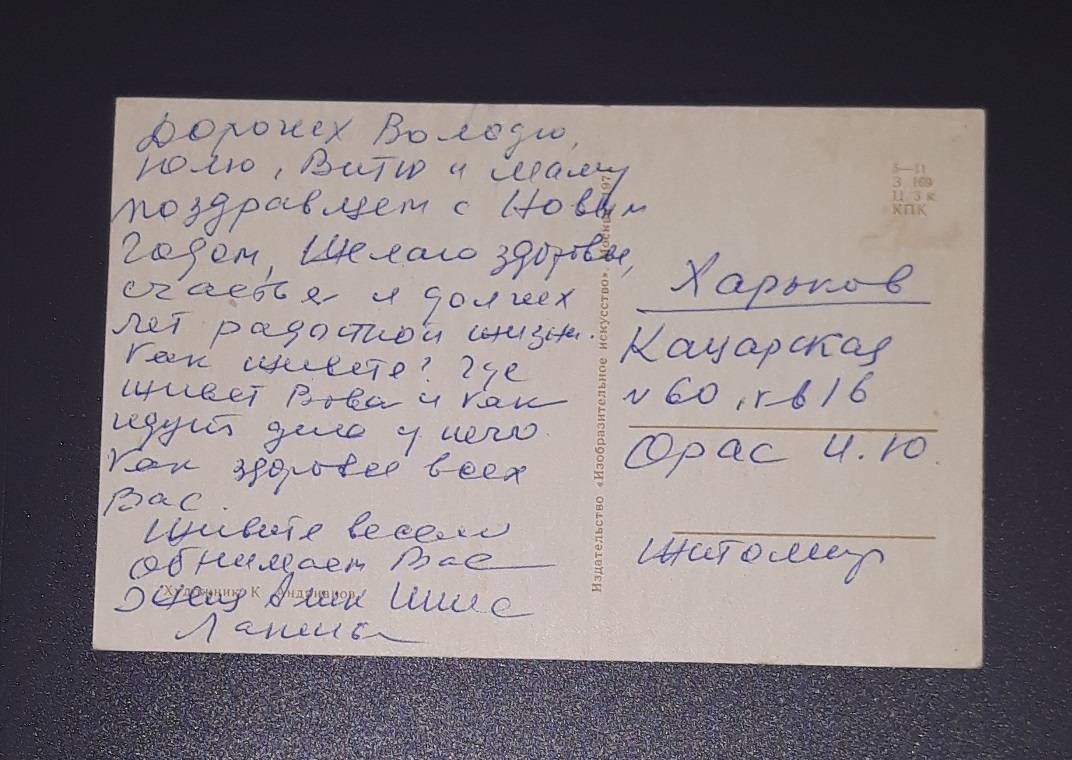 Дорогих Володю,
Юлю, Витю и маму
поздравляем с Новым
Годом, Желаю здоровье,
счастья и долгих
лет радостной жизни.
Как живете? Где
живет Вова и как
идут дела у него.
Как здоровье всех
Вас.
Живите весело
обнимаем Вас
Алик
Художник К Андрианов
Издательство «Изобразительное искусство». Москва. 197
5—11
З. 169
Ц. 3 к
КПК
Харьков
Кацарская
N 60, кв 16
Орас И. Ю.
Житомир